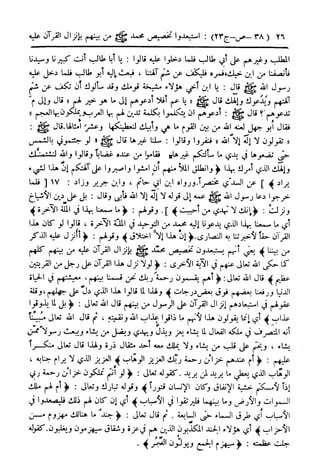 ٢٦ ( ٣٨ ــ ص ــ ج٢٣) : استبعدوا تخصيص محمد ﷺ من بينهم بإنزال القرآن عليه
المطلب وغيرهم على أبي طالب فلما دخلوا عليه قالوا : يا أبا طالب أنت كبيرنا وسيدنا
فأنصفنا من ابن أخيك فمره فليكف عن شتم آلهتنا ، فبعث إليه أبو طالب فلما دخل عليه
رسول الله ﷺ قال : يا ابن أخي هؤلاء مشيخة قومك وقد سألوك أن تكف عن شتم
آلهتهم ويدعوك وإلهك قال ﷺ « يا عم أفلا أدعوهم إلى ما هو خير لهم » قال وإلى م
تدعوهم ؟ قال « أدعوهم أن يتكلموا بكلمة تدين لهم بها العرب ويملكون بها العجم »
فقال أبو جهل لعنه الله من بين القوم ما هي وأبيك لنعطينكها وعشر أمثالها . قال :
« تقولون لا إله إلا الله » فنفروا وقالوا : سلنا غيرها قال ﷺ « لو جئتموني بالشمس
حتى تضعوها في يدي ما سألتكم غيرها » فقاموا من عنده غضابا وقالوا والله لنشتمنك
وإلهك الذي أمرك بهذا ﴿ وانطلق الملأ منهم أن امشوا واصبروا على آلهتكم إن هذا لشيء
يراد ﴾ إن عن السدي مختصرا. ورواه ابن أبي حاتم ، وابن جرير وزاد : ١٧ [ فلما
خرجوا دعا رسول الله ﷺ عمه إلى قوله لا إله إلا الله فأبى وقال : بل على دين الأشياخ
ونزلت : ﴿ إنك لا تهدي من أحببت ﴾ ]. وقولهم : ﴿ ما سمعنا بهذا في الملة الآخرة ﴾
أي ما سمعنا بهذا الذي يدعونا إليه محمد من التوحيد في الملة الآخرة ، قالوا لو كان هذا
القرآن حقا لأخبرتنا به النصارى. ﴿ إن هذا إلا اختلاق ﴾ وقولهم : ﴿ أأنزل عليه الذكر
من بيننا ﴾ يعني أنهم يستبعدون تخصيص محمد ﷺ بإنزال القرآن عليه من بينهم كلهم
كما حكى الله تعالى عنهم في الآية الأخرى : ﴿ لولا نزل هذا القرآن على رجل من القريتين
عظيم ﴾ قال الله تعالى: ﴿ أهم يقسمون رحمة ربك نحن قسمنا بينهم معيشتهم في الحياة
الدنيا ورفعنا بعضهم فوق بعض درجات ﴾ ولهذا لما قالوا هذا الذي دل على جهلهم وقلة
عقولهم في استبعادهم إنزال القرآن على الرسول من بينهم قال الله تعالى : ﴿ بل لما يذوقوا
عذاب ﴾ أي إنما يقولون هذا لأنهم ما ذاقوا عذاب الله ونقمته ، ثم قال الله تعالى مبينا
أنه المتصرف في ملكه الفعال لما يشاء يعز ويذل ويهدي ويضل من يشاء ويبعث رسولا ممن
يشاء ، ويختم على قلب من يشاء ولا يملك معه أحد مثقال ذرة ولهذا قال تعالى منكرا
عليهم : ﴿ أم عندهم خزائن رحمة ربك العزيز الوهاب ﴾ العزيز الذي لا يرام جنابه ،
الوهاب الذي يعطي ما يريد لمن يريد. كقوله تعالى : ﴿ لو أنتم تملكون خزائن رحمة ربي
إذا لأمسكتم خشية الإنفاق وكان الإنسان قتورا ﴾ وقوله تبارك وتعالى : ﴿ أم لهم ملك
السموات والأرض وما بينهما فليرتقوا في الأسباب ﴾ أي إن كان لهم ذلك فليصعدوا في
الأسباب أي طرق السماء حتى السابعة . ثم قال تعالى : ﴿ جند ما هنالك مهزوم من
الأحزاب ﴾ أي هؤلاء الجند المكذبون الذين هم في عزة وشقاق سيهزمون ويغلبون. كقوله
جلت عظمته : ﴿ سيهزم الجمع ويولون الدبر ﴾ .